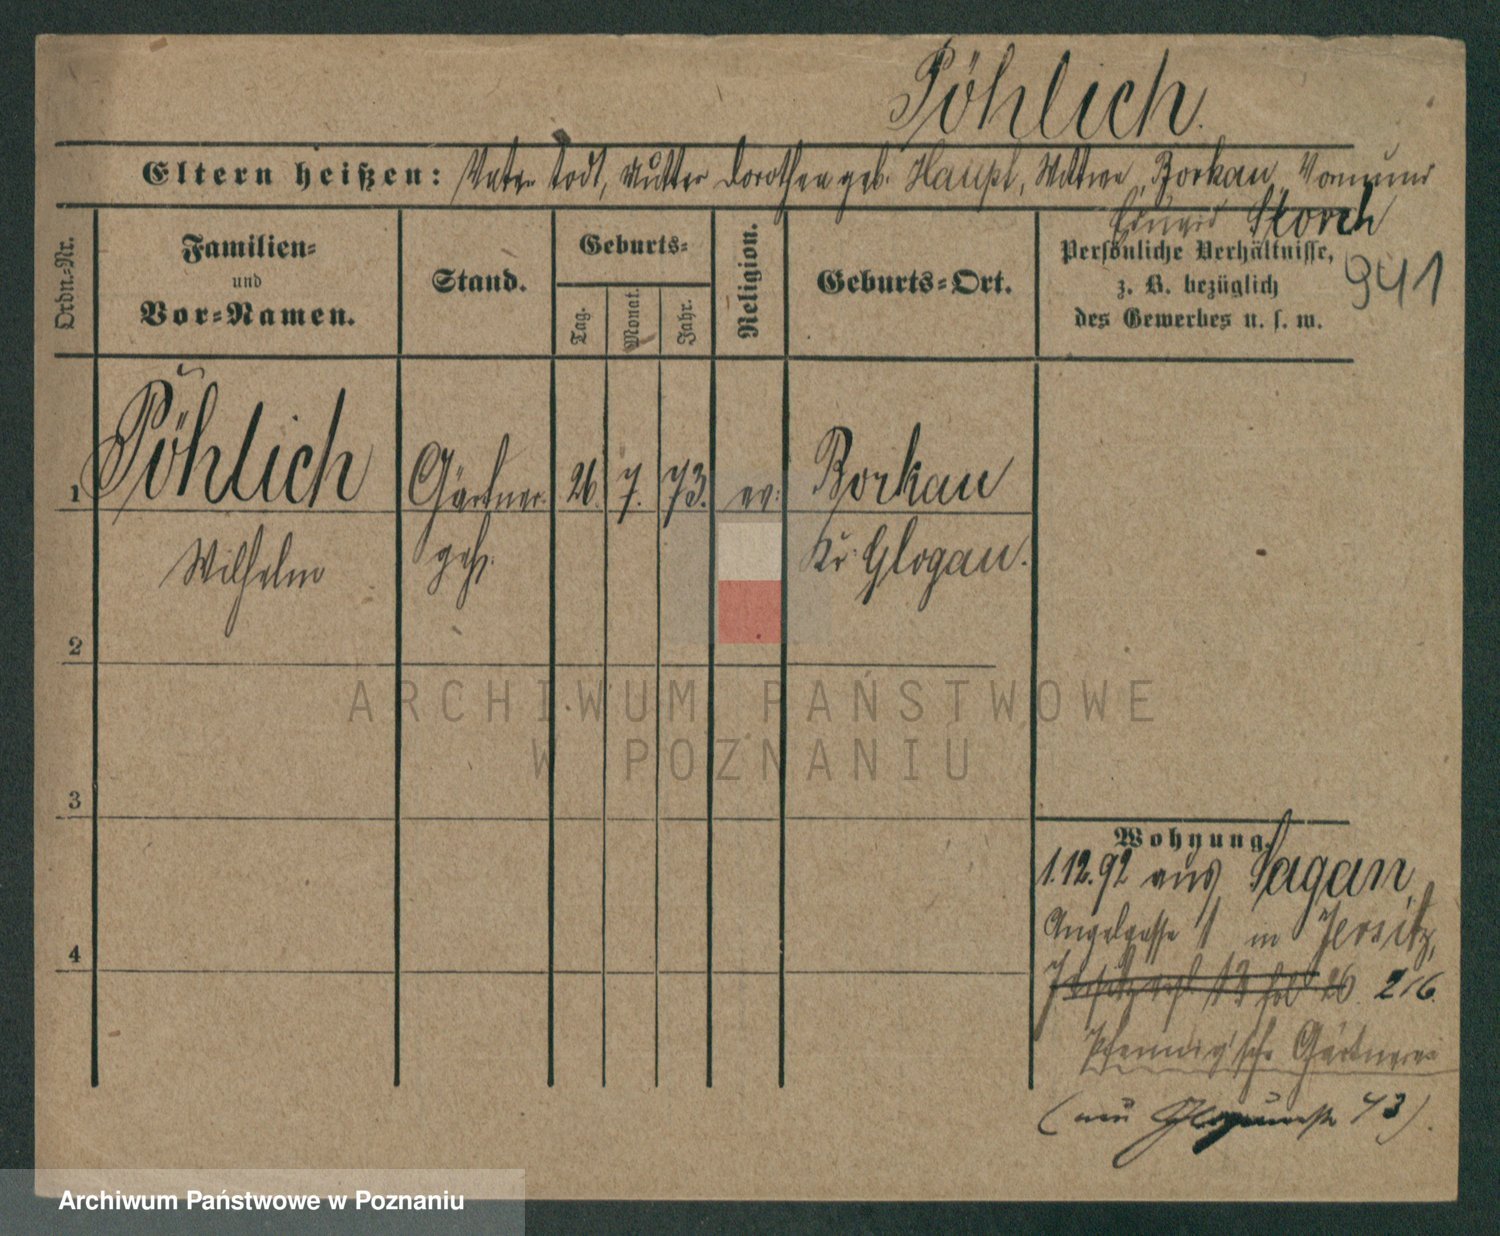 Pöhlich.
Eltern heißen: Vater todt, Mutter Dorothea geb. Haupt, Wittwe, Borkau, Vormund
Storch
941
Ordn.-Nr.
Familien-
und
Vor-Namen.
Stand.
Geburts-
Tag.
Monat.
Jahr.
Religion.
Geburts-Ort.
Persönliche Verhältnisse,
z. B. bezüglich
des Gewerbes u. s. w.
1 Pöhlich Gärtner 26. 7. 73. ev: Borkau
Wilhelm geh. Kr. Glogau.
2
ARCHIWUM PAŃSTWOWE
W POZNANIU
3
Wohnung.
1.12.92 aus Sagan
Angelgasse 1 in Jersitz,
4
216.
Pfennig'sche Gärtnerei
(neu 43).
Archiwum Państwowe w Poznaniu